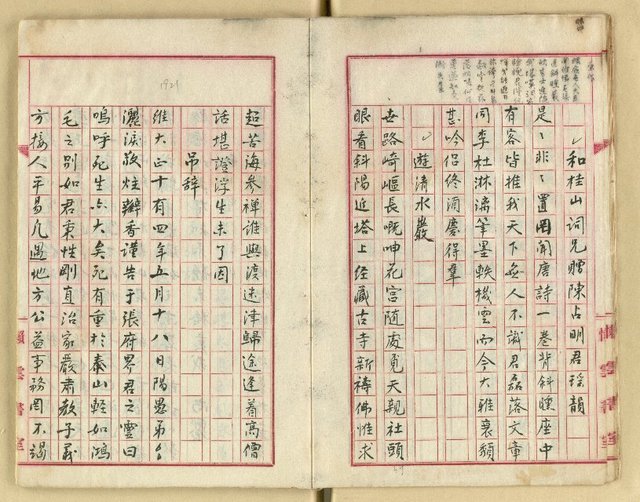 和桂山詞兄贈陳占明君瑤韻
是是非非置罔聞唐詩一卷背斜曛座中
有客皆推我天下無人不識君磊落文章
同李杜淋漓筆墨軼機雲而今大雅衰頹
甚吟侶終須慶得羣
遊清水巖
世路崎嶇長嘆呻花宮隨處覓天親社頭
眼看斜陽近塔上經藏古寺新禱佛惟求
超苦海參禪誰與渡迷津歸途逢着高僧
話堪證浮生未了因
1921
弔辭
維大正十有四年五月十八日陽愚弟等
灑淚敬炷瓣香謹告于張府界君之靈曰
嗚呼死生亦大矣死有重於泰山輕如鴻
毛之別如君秉性剛直治家嚴肅教子義
方接人平易凡遇地方公益事務罔不竭
懶雲書室